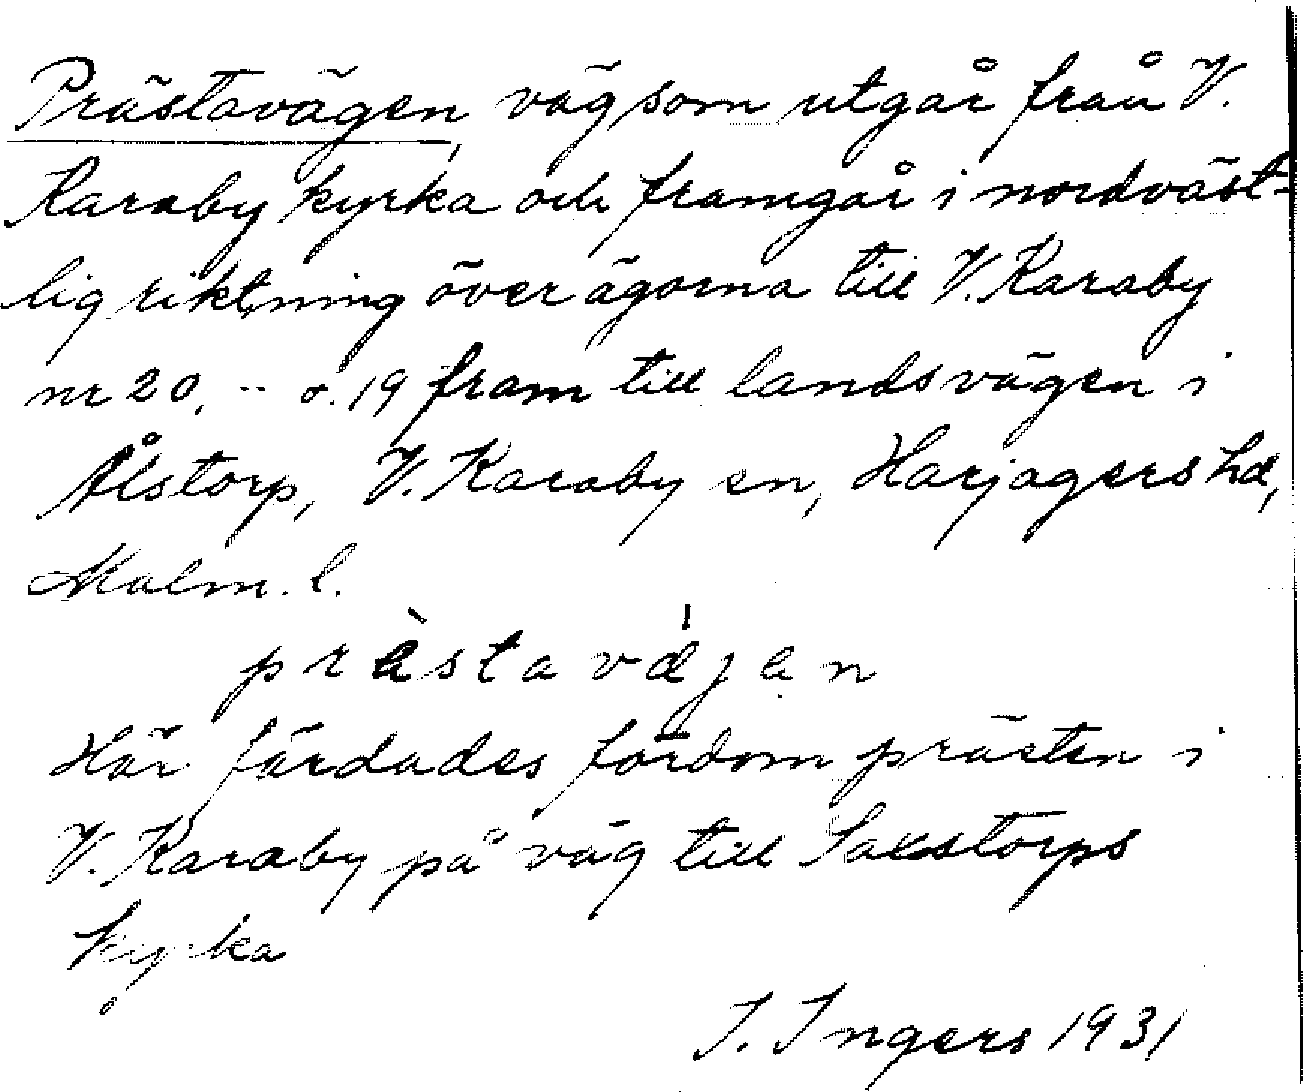 Prästavägen, väg som utgår från V.
Karaby kyrka och framgår i nordväst-
lig riktning över ägorna till V. Karaby
nr 20, -- o. 19 fram till landsvägen i
Ålstorp, V. Karaby sn, Harjagers hd,
Malm. l.
prästaväjen
Här färdades fördom prästen i
V. Karaby på väg till Saxtorps
kyrka
I. Ingers 1931